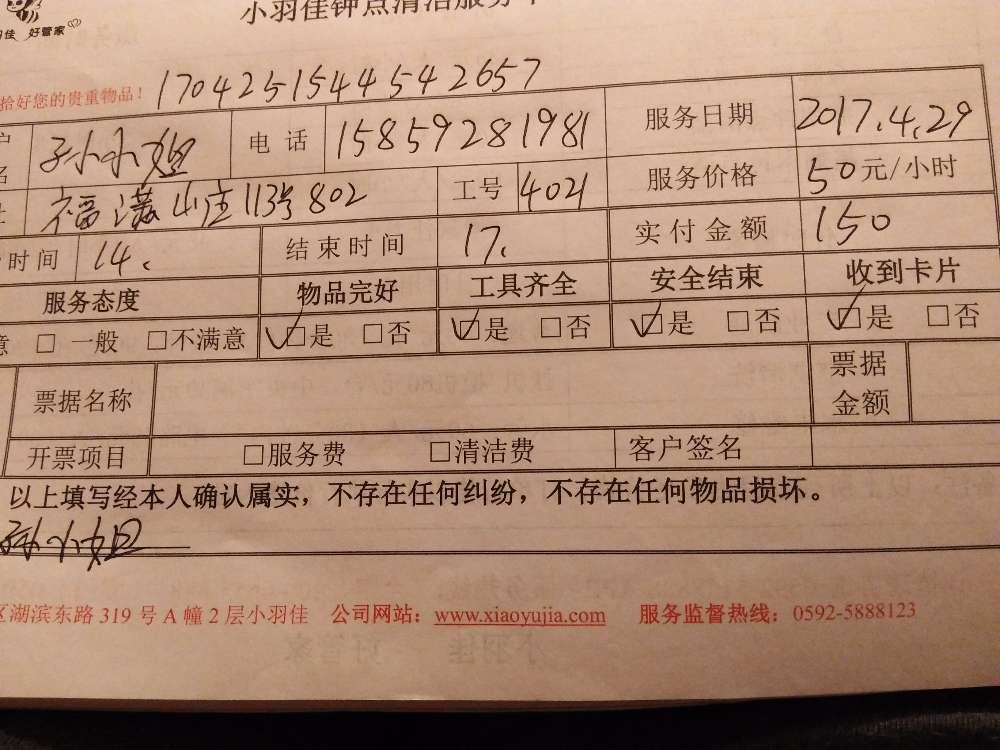 小羽佳钟点清洁服务
羽佳 好管家
拾好您的贵重物品! 1704251544542657
名 孙小姐 电话 15859281981 服务日期 2017.4.29
福满山庄113号802 工号 4021 服务价格 50元/小时
时间 14. 结束时间 17. 实付金额 150
服务态度 物品完好 工具齐全 安全结束 收到卡片
意 □ 一般 □不满意 ☑是 □否 ☑是 □否 ☑是 □否 ☑是 □否
票据名称 票据金额
开票项目 □服务费 □清洁费 客户签名
以上填写经本人确认属实，不存在任何纠纷，不存在任何物品损坏。
孙小姐
区湖滨东路 319 号 A 幢 2 层小羽佳 公司网站：www.xiaoyujia.com 服务监督热线：0592-5888123